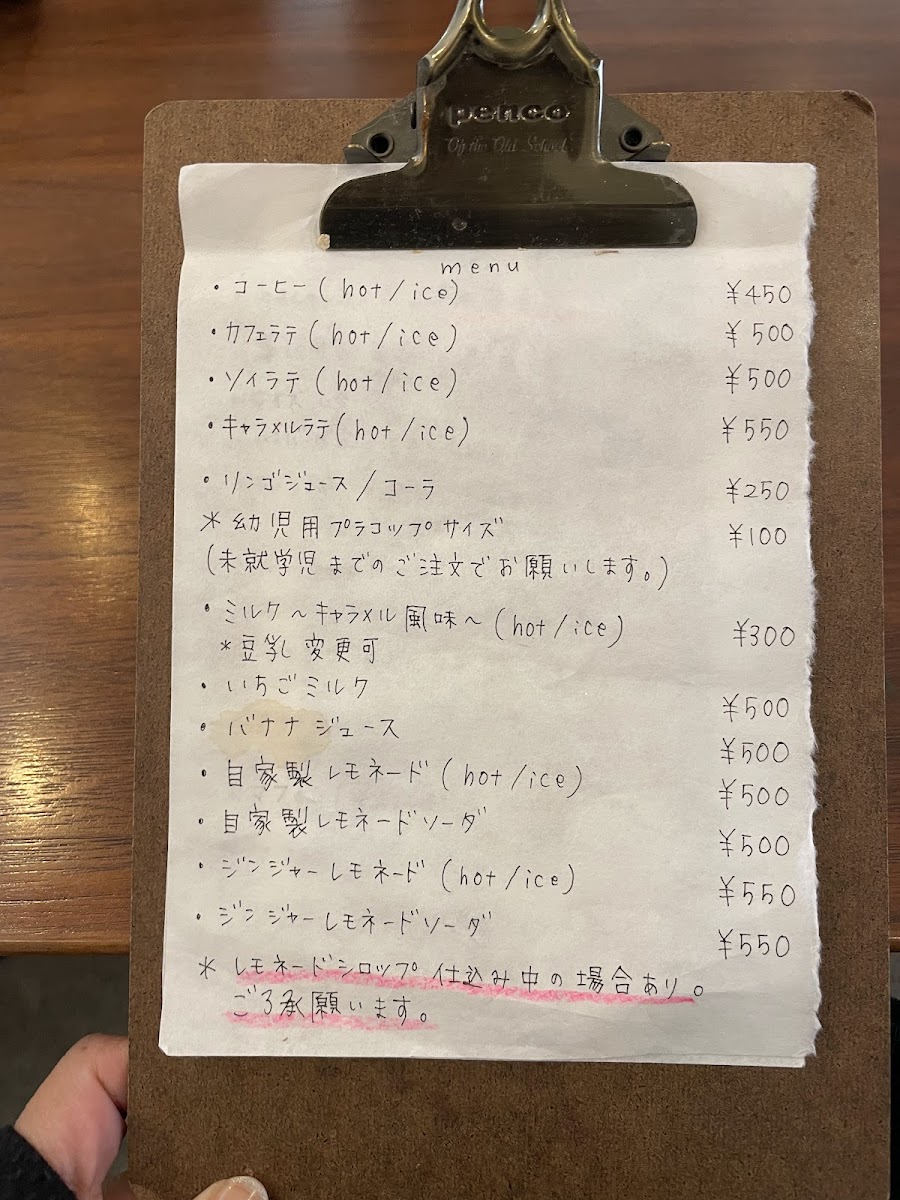 penco
On the Old School
menu
・コーヒー(hot/ice) ¥450
・カフェラテ(hot/ice) ¥500
・ソイラテ(hot/ice) ¥500
・キャラメルラテ(hot/ice) ¥550
・リンゴジュース/コーラ ¥250
*幼児用プラコップサイズ ¥100
(未就学児までのご注文でお願いします。)
・ミルク~キャラメル風味~(hot/ice) ¥300
*豆乳変更可
・いちごミルク ¥500
・バナナジュース ¥500
・自家製レモネード(hot/ice) ¥500
・自家製レモネードソーダ ¥500
・ジンジャーレモネード(hot/ice) ¥550
・ジンジャーレモネードソーダ ¥550
*レモネードシロップ仕込み中の場合あり。
ご了承願います。